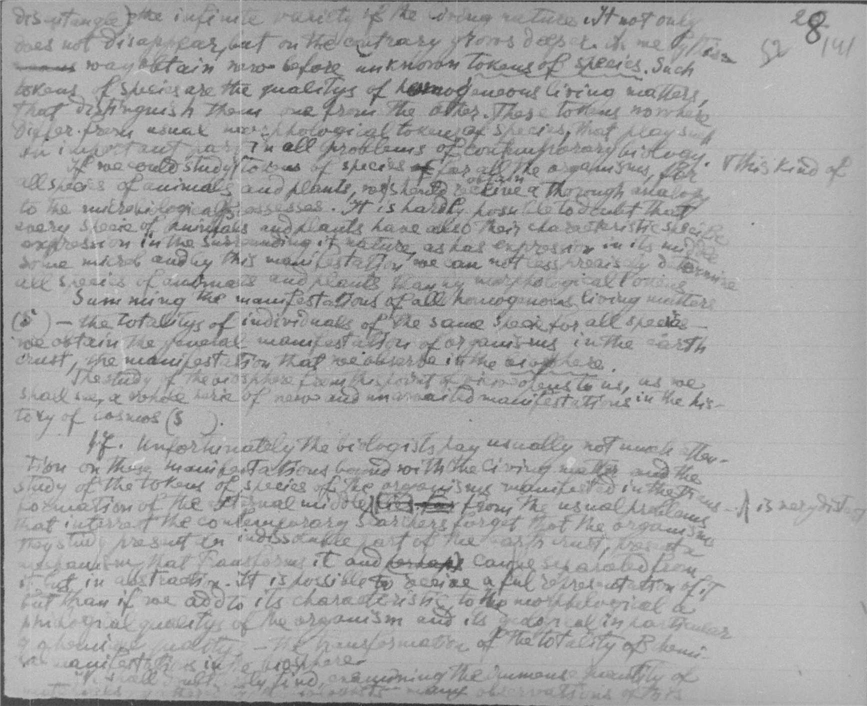 disentangle) the infinite variety of the living nature. It not only
does not disappear, but on the contrary grows deeper. In
way obtain new before unknown tokens of species. Such
tokens of species are the qualitys of homogeneous living matters,
that distinguish them one from the other. These tokens nowhere
differ from usual morphological tokens of species, that play such
an important part in all problems of contemporary biology.
If we could study tokens of species for all the organisms, for
all species of animals and plants, we should obtain a thorough analogy
to the microbiological processes. It is hardly possible to doubt that
every specie of animals and plants have also their characteristic specific
expression in the surrounding it nature, as has expression in its middle
some microb and by this manifestation we can not less precisely determine
all species of animals and plants than by morphological tokens.
Summing the manifestations of all homogenous living matters
(§ ) – the totality of individuals of the same specie for all species –
we obtain the general manifestation of organisms in the earth
crust, the manifestation that we observe in the biosphere.
The study of the biosphere from this point of view opens to us, as we
shall see, a whole serie of new and unawaited manifestations in the his-
tory of cosmos (§ ).
17. Unfortunately the biologists pay usually not much atten-
tion on these manifestations bound with the living matter and the
study of the tokens of species of the organisms manifested in the trans-
formation of the external middle from the usual problems
that interest the contemporary searchers forget that the organisms
they study present an indissoluble part of the earth crust, present a
mechanism, that transforms it and can be separated from
it but in abstraction. It is possible to receive a full representation of it
but than if we add to its characteristic, to the morphological
qualitys of the organism and its in particular
quality – the transformation of the totality of
manifestations in the biosphere.
We shall doubtlessly find, examining the immense quantity of
many observations of this
this kind of
is very distant
28
52
141